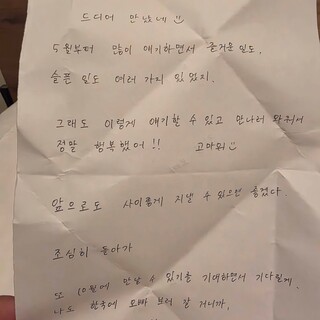 드디어 만났네
5월부터 많이 얘기하면서 즐거운 일도,
슬픈 일도 여러 가지 있었지.
그래도 이렇게 얘기할 수 있고 만나러 와줘서
정말 행복했어!! 고마워
앞으로도 사이좋게 지낼 수 있으면 좋겠다.
조심히 돌아가
또 10월에 만날 수 있기를 기대하면서 기다릴게.
나도 한국에 오빠 보러 갈 거니까.